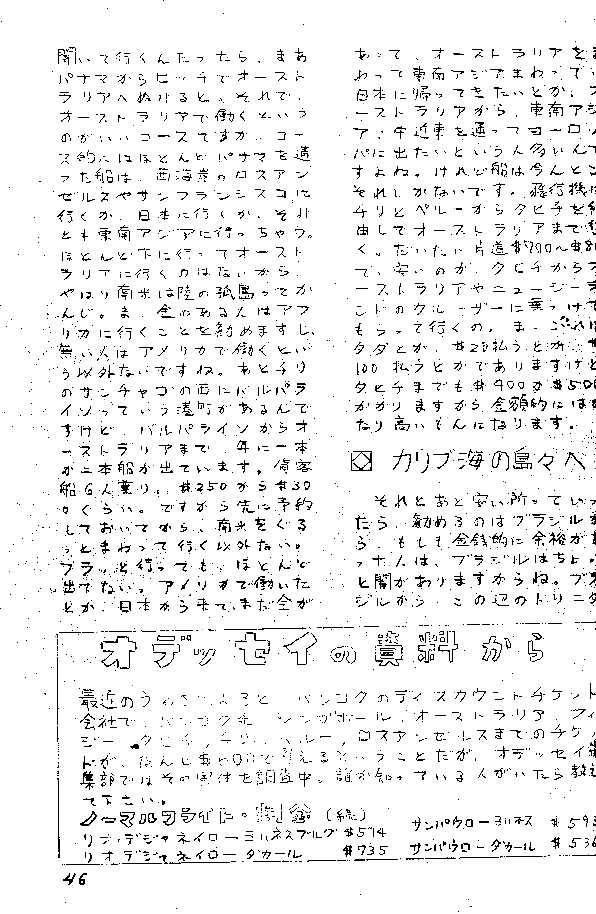 聞いて行くんだったら、まあ
パナマからヒッチでオースト
ラリアへぬけると。それで、
オーストラリアで働くという
のがいいコースですが、ヨー
ス的にはほとんどパナマを通
った船は、西海岸のロスアン
ゼルスやサンフランシスコに
行くか、日本に行くか、それ
とも東南アジアに行っちゃう。
ほとんど下に行ってオースト
ラリアに行くのはないから、
やはり南米は陸の孤島ってか
んじ。ま、金のある人はアフ
リカに行くことを勧めますし、
無い人はアメリカで働くとい
う以外ないですね。あとチリ
のサンチャゴの西にバルパラ
イソっていう港町があるんで
すけど、バルパライソからオ
ーストラリアまで、年に一本
か二本船が出ています。貨客
船6人乗り。$250から$30
0くらい。ですから先に予約
しておいてから、南米をぐる
っとまわって行く以外ない。
ブラッと行っても、ほとんど
出てない。アメリカで働いた
とか、日本から来て、まだ金が
あって、オーストラリアをま
わって東南アジアまわってい
日本に帰ってきたいとか、オ
ーストラリアから、東南アジ
ア、中近東を通ってヨーロッ
パに出たいという人多いんで
すよね。けれど船はほとんど
それしかないです。飛行機は
チリとペルーからタヒチを経
由してオーストラリアまで
く。だいたい片道$700〜$80
で、安いのが、タヒチからオ
ーストラリアやニュージーラ
ンドのクルーザーに乗っけて
もらって行くの。ま、これは
タダとか、$20払うとか、$
100払うとかでありますけど
タヒチまでも$400か$500
かかりますから金額的にはか
なり高いもんになります。
◇ カリブ海の島々へ
それとあと安い所っていっ
たら、勧めるのはブラジルか
ら、もしも金銭的に余裕があ
った人は、ブラジルはちょっ
と闇がありますからね。ブラ
ジルから、この辺のトリニダ
オデッセイの資料から
最近のうわさによると、バンコクのディスカウントチケット
会社で、バンコク発、シンガポール、オーストラリア、フィ
ジー、タヒチ、チリ、ペルー、ロスアンゼルスまでのチケッ
トが、なんと で買えるということだが、オデッセイ編
集部ではその実体を調査中。誰か知っている人がいたら教え
て下さい。
ノーマルフライト・料金（続）
リオデジャネイローヨハネスブルグ $574 サンパウローヨハネス $593
リオデジャネイローダカール $735 サンパウローダカール $536
46